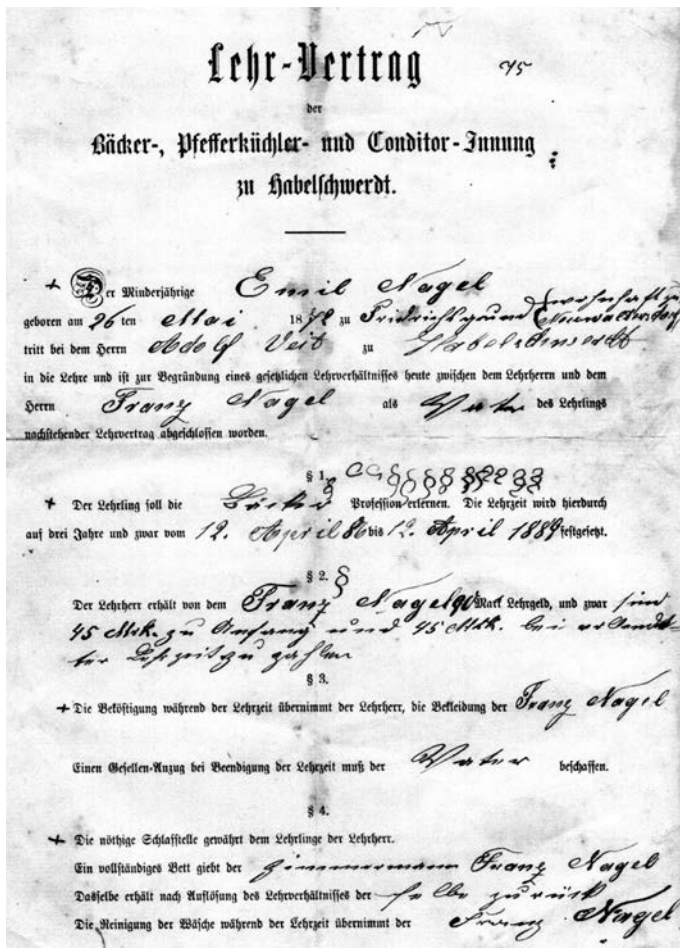 Lehr-Vertrag
der
Bäcker-, Pfefferküchler- und Conditor-Innung
zu Habelschwerdt.
Der Minderjährige Emil Nagel
geboren am 26 ten Mai 1872 zu Fridrichsgrund wohnhaft zu
tritt bei dem Herrn Adolf Veit zu Habelschwerdt
in die Lehre und ist zur Begründung eines gesetzlichen Lehrverhältnisses heute zwischen dem Lehrherrn und dem
Herrn Franz Nagel als Vater des Lehrlings
nachstehender Lehrvertrag abgeschlossen worden.
§ 1.
Der Lehrling soll die Bäcker Profession erlernen. Die Lehrzeit wird hierdurch
auf drei Jahre und zwar vom 12. April 86 bis 12. April 1889 festgesetzt.
§ 2.
Der Lehrherr erhält von dem Franz Nagel 90 Mark Lehrgeld, und zwar sind
45 Mrk. zu Anfang und 45 Mrk. bei
zu zahlen
§ 3.
Die Beköstigung während der Lehrzeit übernimmt der Lehrherr, die Bekleidung der Franz Nagel
Einen Gesellen-Anzug bei Beendigung der Lehrzeit muß der Vater beschaffen.
§ 4.
Die nöthige Schlafstelle gewährt dem Lehrlinge der Lehrherr.
Ein vollständiges Bett giebt der Zimmermann Franz Nagel
Dasselbe erhält nach Auflösung des Lehrverhältnisses der selbe zurück
Die Reinigung der Wäsche während der Lehrzeit übernimmt der Franz Nagel